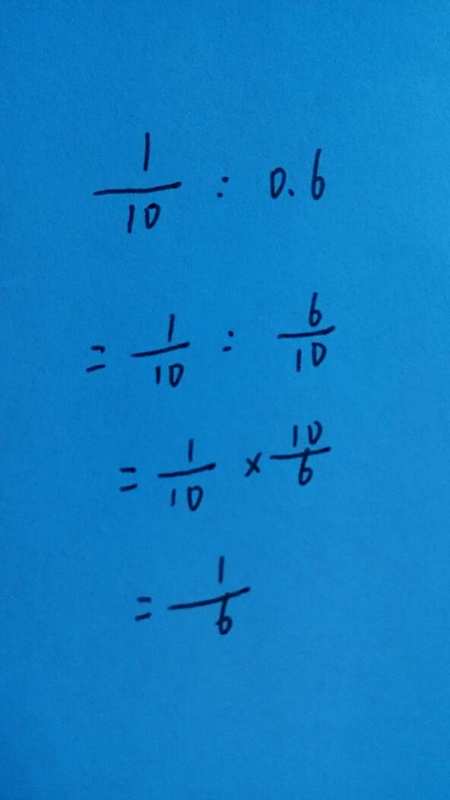 1/10 : 0.6
= 1/10 : 6/10
= 1/10 × 10/6
= 1/6